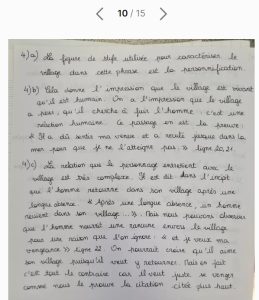 10 / 15
4)a) La figure de style utilisée pour caractériser le
village dans cette phrase est la personnification.
4)b) Cela donne l'impression que le village est vivant
qu'il est humain. On a l'impression que le village
a peur, qu'il cherche à fuir l'homme : c'est une
réaction humaine. Ce passage en est la preuve :
« Il a dû sentir ma venue et a reculé jusque dans la
mer pour que je ne l'atteigne pas. » ligne 20,21.
4)c) La relation que le personnage entretient avec le
village est très complexe. Il est dit dans l'incipit
que l'homme retourne dans son village après une
longue absence. « Après une longue absence, un homme
revient dans son village ... ». Mais nous pouvons observer
que l'homme nourrit une rancune envers le village
pour une raison que l'on ignore : « et je veux ma
vengeance » ligne 22. On pourrait croire qu'il aime
son village puisqu'il veut y retourner. Mais en fait
c'est tout le contraire car il veut juste se venger
comme nous le prouve la citation citée plus haut.